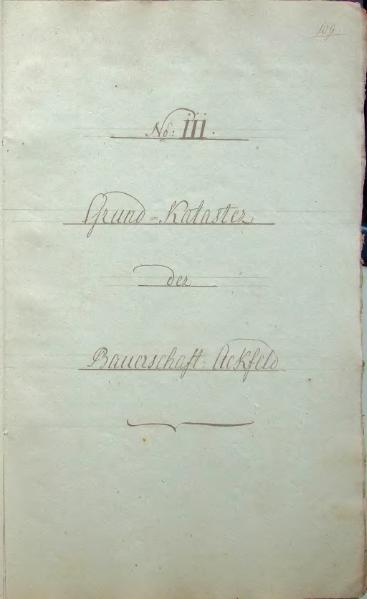 109.
No: III.
Grund-Kataster
der
Bauerschaft Ackfeld